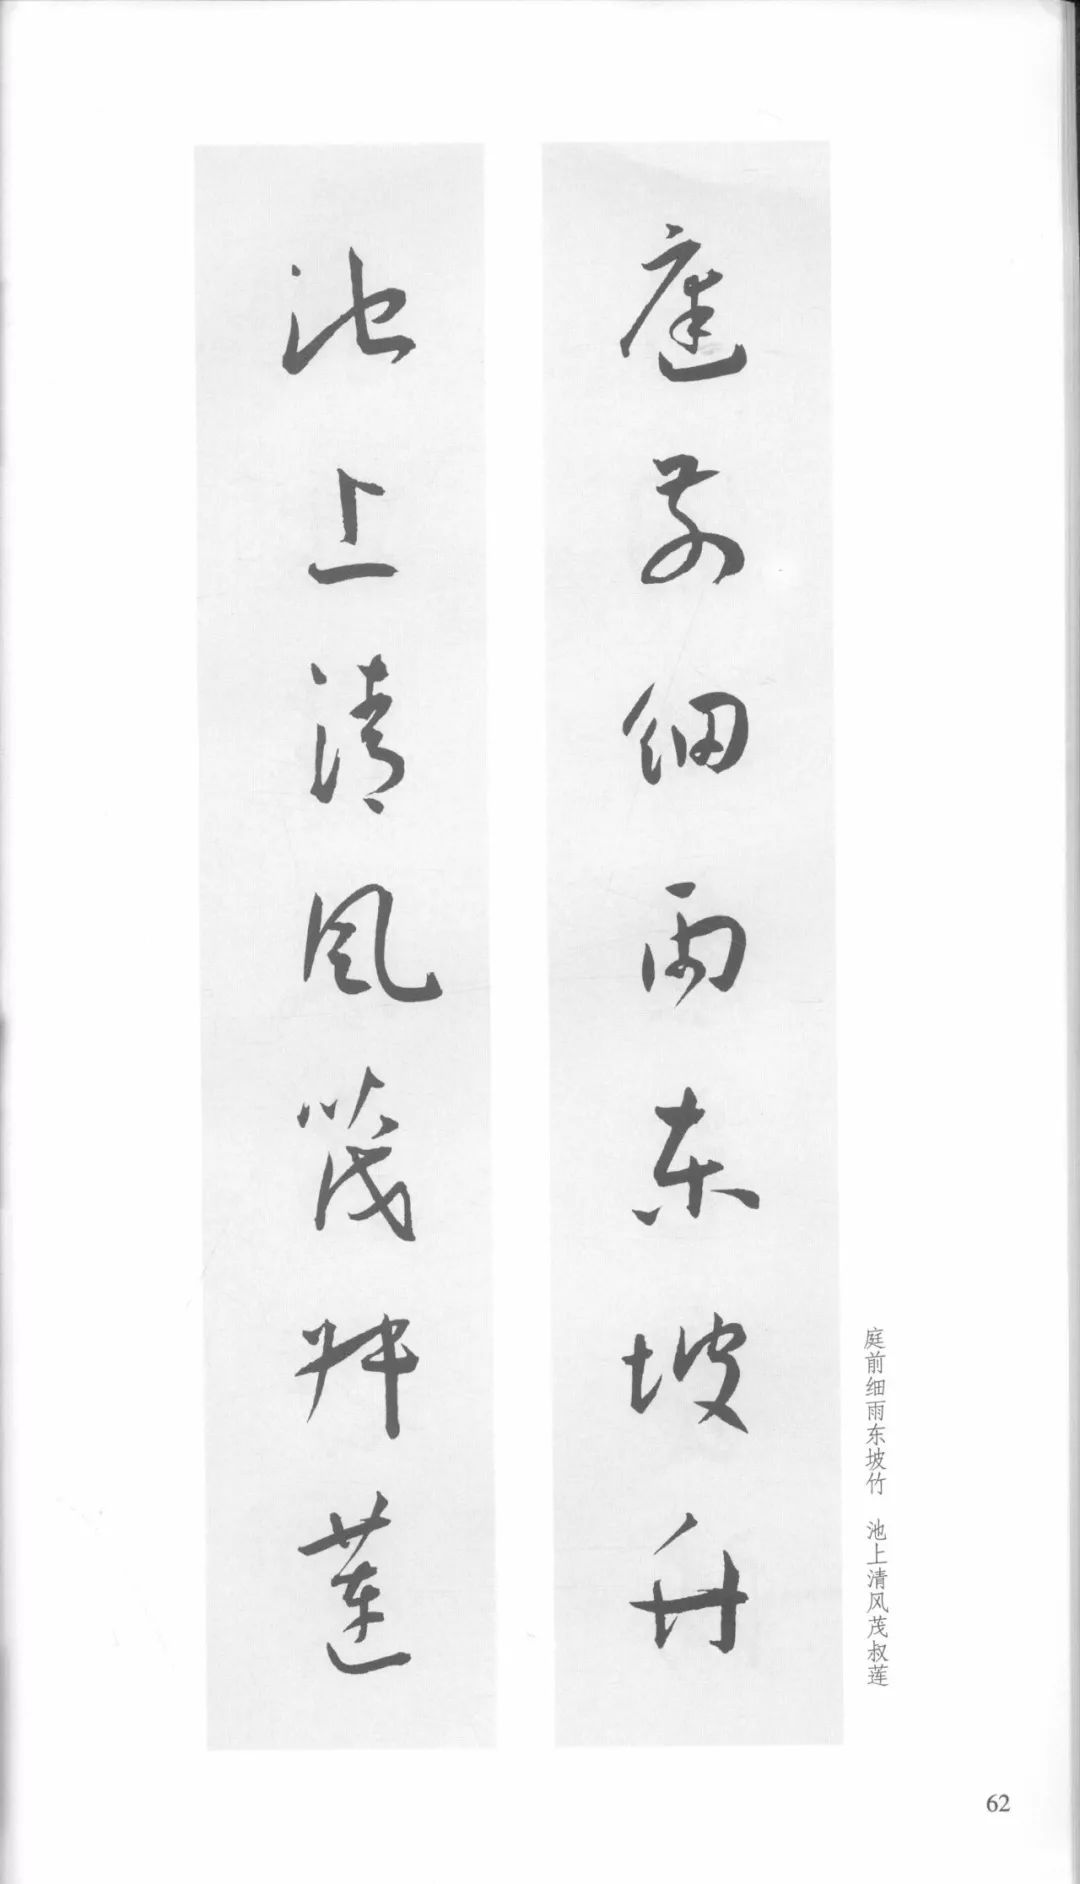 庭前细雨东坡竹
池上清风茂叔莲
庭前细雨东坡竹 池上清风茂叔莲
62